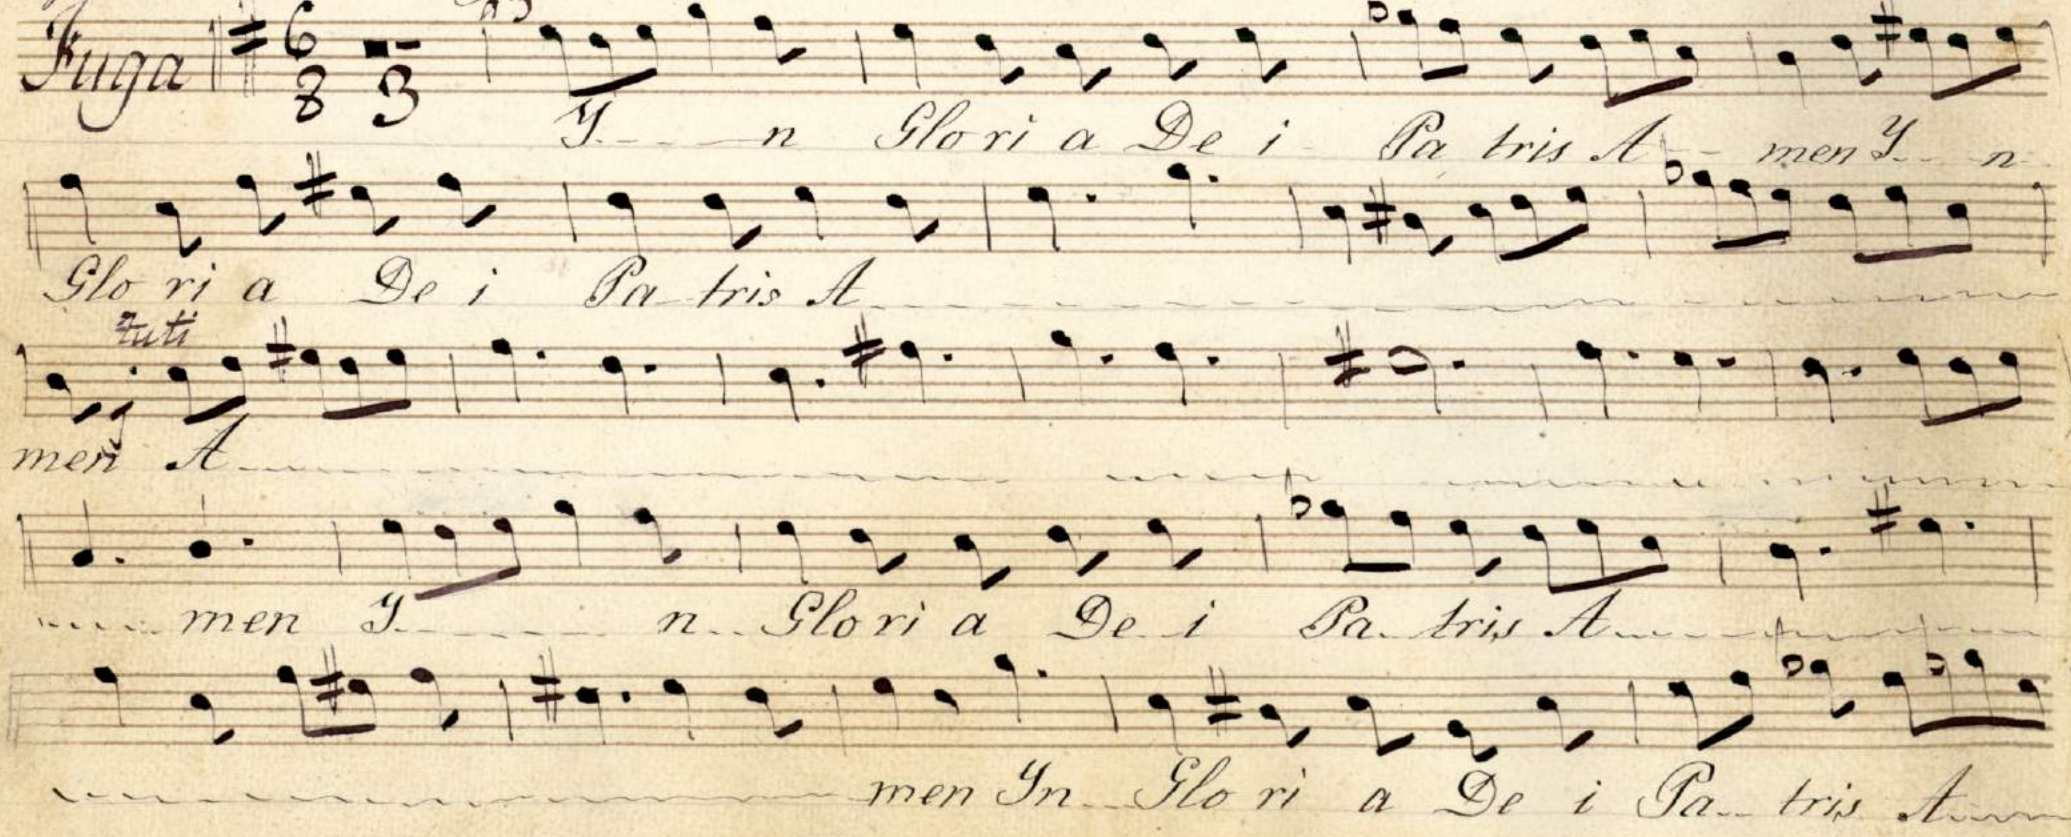 Fuga 6 8 3
Y - - - n Glo ri a De i Pa tris A - - men Y - - n
Glo ri a De i Pa tris A
tuti
men A
men Y - - - n Glo ri a De i Pa tris A
men Yn Glo ri a De i Pa tris A